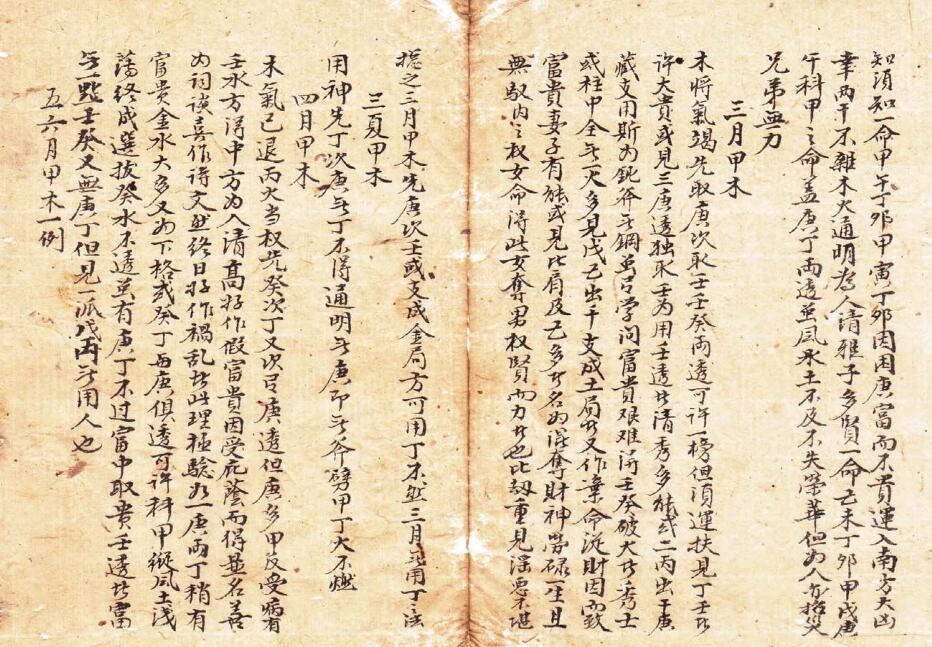 知須知一命甲午丁卯甲寅丁卯因困庚富而不貴運入南方大凶
幸两干不雜木火通明為人清雅子多賢一命己未丁卯甲戌庚
午科甲之命盖庚丁両透虽風水土不及不失榮華但为人亦招災
兄弟無力
三月甲木
木將氣竭先取庚次取壬壬癸両透可許一榜但須運扶見丁壬者
許大貴或見三庚透独取壬為用壬透者清秀多能或二丙出干庚
藏支用斯为鈍斧无鋼虽学問富貴艰难得壬癸破火者秀士
或柱中全无火多見戊己出干支成土局者又作棄命從財因而致
富貴妻子有能或見比肩及己多者名為混奪財神劳碌一生且
無馭内之权女命得此女奪男权賢而力者也比劫重見淫悪不堪
捴之三月甲木先庚次壬或支成金局方可用丁不然三月无用丁之法
三夏甲木
用神先丁次庚无丁不得通明无庚即无斧劈甲丁火不燃
四月甲木
木氣已退丙火当权先癸次丁又次言庚透但庚多甲反受病有
壬水方得中方为入清髙好作假富貴因受庇蔭而得显名善
为词訟喜作诗文然终日好作禍乱者此理極驗为一庚両丁稍有
富貴金水大多又为下格或癸丁再庚俱透可許科甲縱風土浅
薄终成選拔癸水不透虽有庚丁不过富中取貴壬透者富
无一㸃壬癸又無庚丁但見一派戊丙无用人也
五六月甲木一例